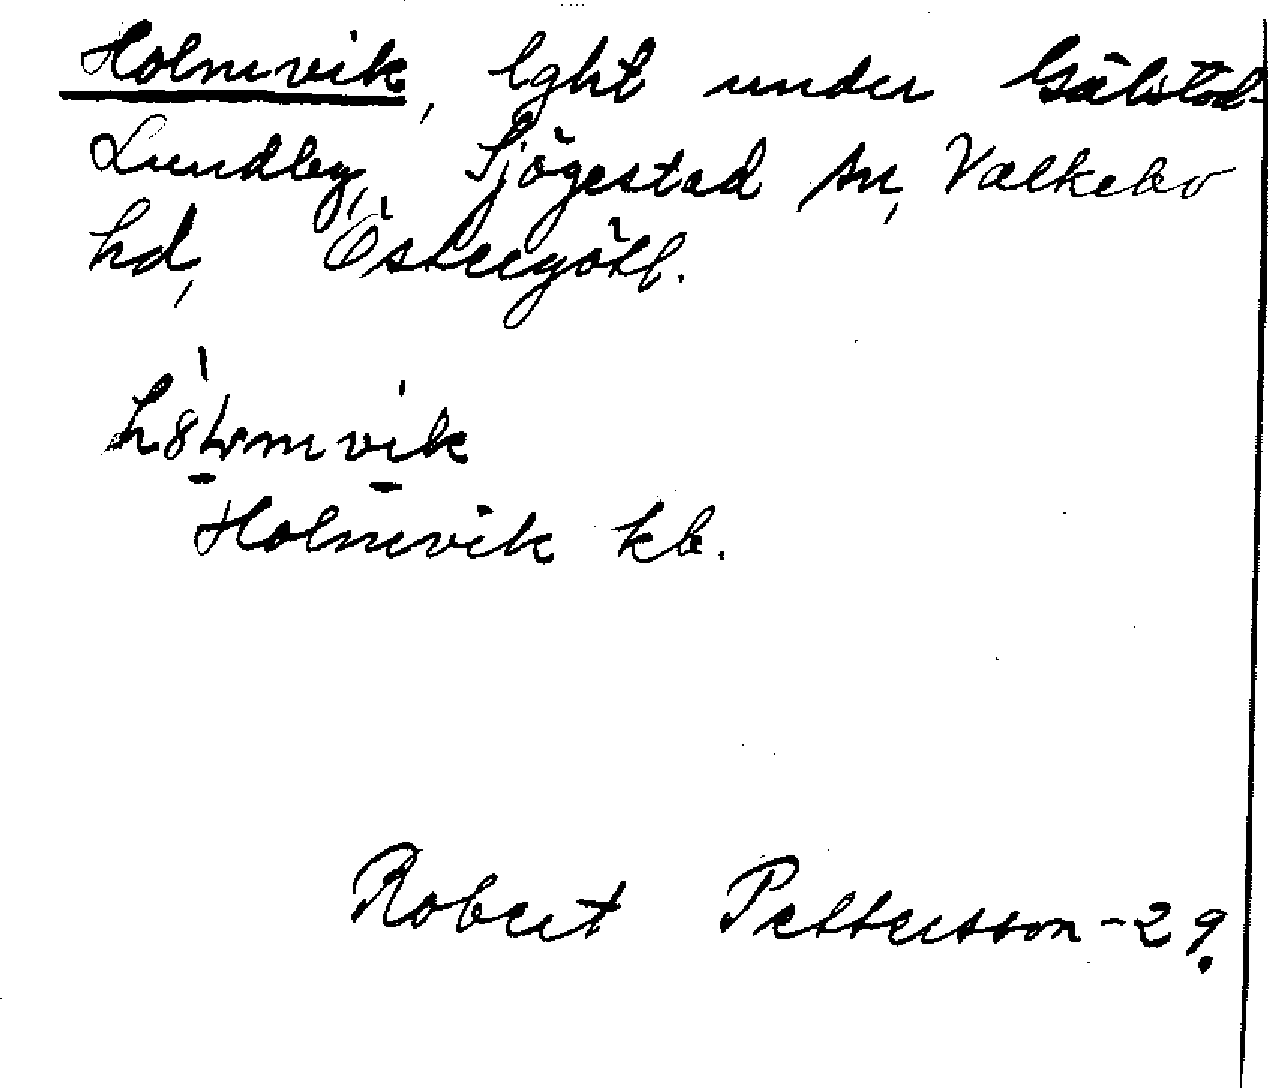 Holmvik, lght under Gälstad-
Lundby, Sjögestad sn, Valkebo
hd, Östergötl.
Holmvik kb.
Robert Pettersson -29.